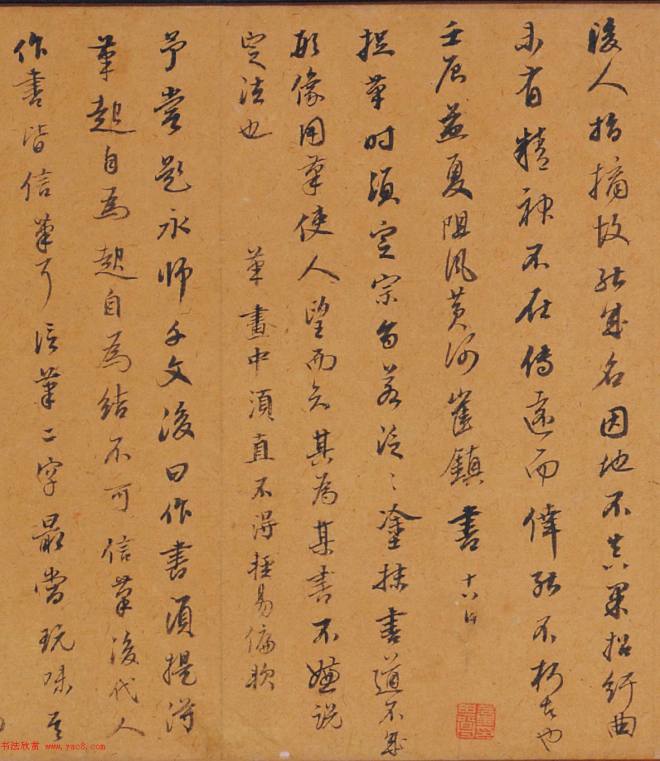 後人指摘故能成名因地不真果招紆曲
未有精神不在傳遠而倖能不朽者也
壬辰孟夏阻風黃河崔鎮書十八日
捉筆時須定宗旨若泛〻塗抹書道不成
形像用筆使人望而知其為某書不嫌說
定法也 筆畫中須直不得輕易偏軟
予嘗題永師千文後曰作書須提得
筆起自為起自為結不可信筆後代人
作書皆信筆耳信筆二字最當玩味吾
书法欣赏 www.yac8.com